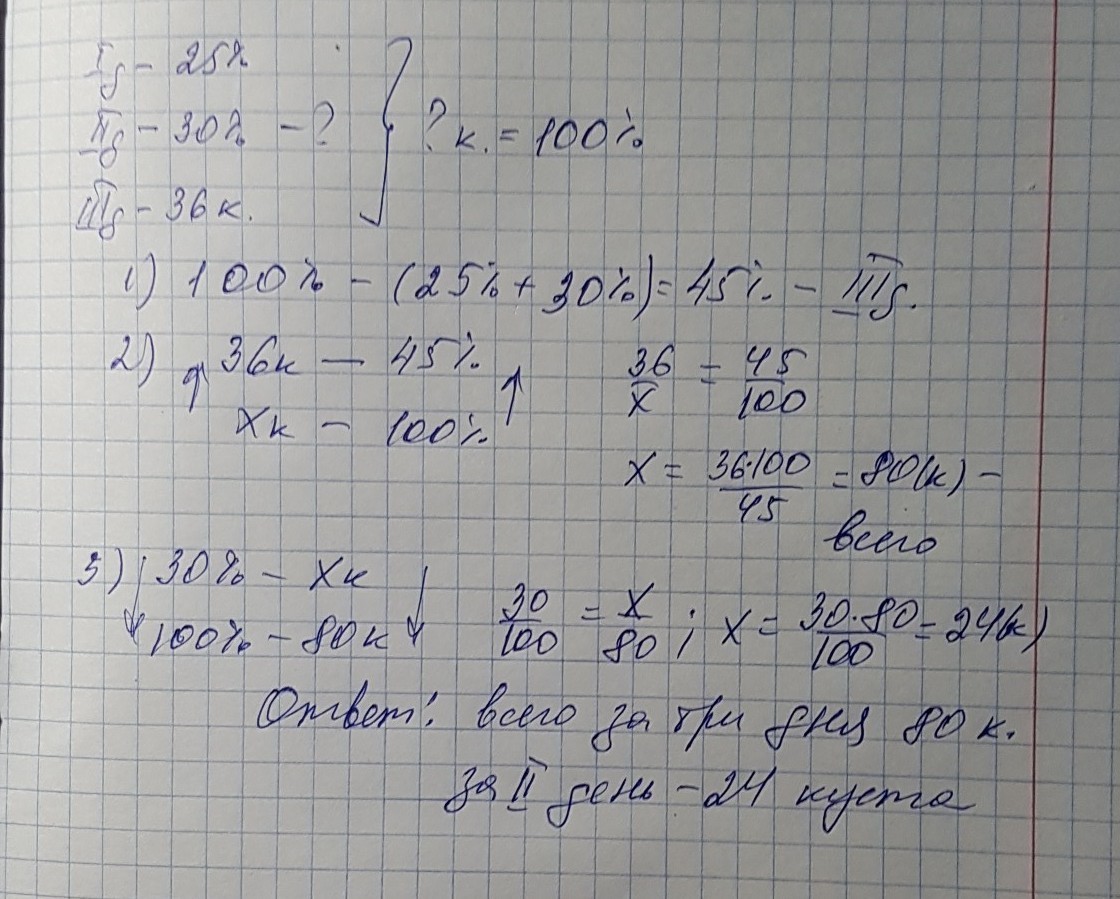 I д - 25%
II д - 30% - ?
III д - 36 к.
? к. = 100%
1) 100% - (25% + 30%) = 45% - III д.
2) 36к — 45%
xк - 100%
36/x = 45/100
x = 36·100/45 = 80(к) -
всего
3) 30% - xк
100% - 80к
30/100 = x/80 ; x = 30·80/100 = 24(к)
Ответ: всего за три дня 80 к.
за II день - 24 куста